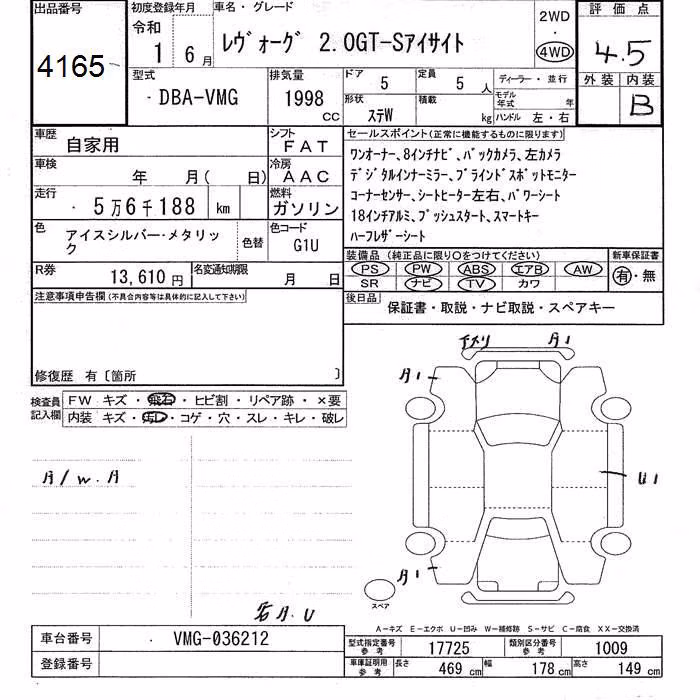 出品番号
4165
初度登録年月
令和
1 6月
車名・グレード
レヴォーグ 2.0GT-Sアイサイト
2WD
・
4WD
評価点
4.5
外装 内装
B
型式
DBA-VMG
排気量
1998
CC
ドア
5
定員
5 人
形状
ステW
積載
kg
ディーラー・並行
モデル年式
年
ハンドル 左・右
車歴
自家用
シフト
FAT
車検
年 月( 日)
冷房
AAC
走行
5万6千188 km
燃料
ガソリン
色
アイスシルバー・メタリック
色替
色コード
G1U
R券
13,610円
名変通知期限
月 日
セールスポイント(正常に機能するものに限ります)
ワンオーナー、8インチナビ、バックカメラ、左カメラ
デジタルインナーミラー、ブラインドスポットモニター
コーナーセンサー、シートヒーター左右、パワーシート
18インチアルミ、プッシュスタート、スマートキー
ハーフレザーシート
装備品(純正品に限り○をつけてください)
PS PW ABS エアB AW
SR ナビ TV カワ
新車保証書
有・無
後日品
保証書・取説・ナビ取説・スペアキー
注意事項申告欄(不具合内容等は具体的に記入して下さい)
修復歴 有〔箇所 〕
検査員
記入欄
FW キズ・飛石・ヒビ割・リペア跡・×要
内装 キズ・汚レ・コゲ・穴・スレ・キレ・破レ
A/W.A
A1
A1
U1
A1
スペア
A-キズ E-エクボ U-凹み W-補修跡 S-サビ C-腐食 XX-交換済
車台番号
VMG-036212
登録番号
型式指定番号
参考
17725
類別区分番号
参考
1009
車庫証明用
参考
長さ
469 cm
幅
178 cm
高さ
149 cm